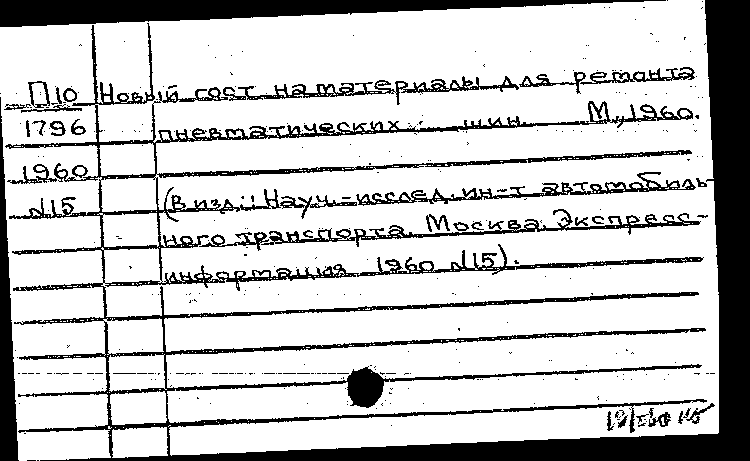 П10 Новый гост на материалы для ремонта
1796 пневматических шин. М., 1960.
1960
№15 (В изд.: Науч.-исслед. ин-т автомобиль-
ного транспорта. Москва. Экспресс-
информация 1960 №15).